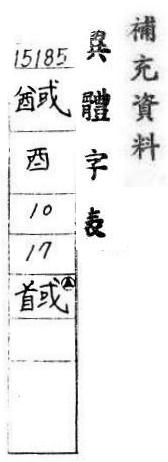 補充資料
異體字表
15185
酉
10
17
馘